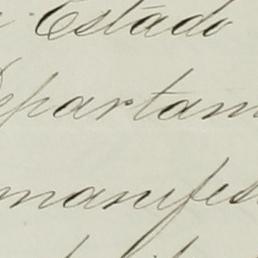 Estado
Departam
manifes